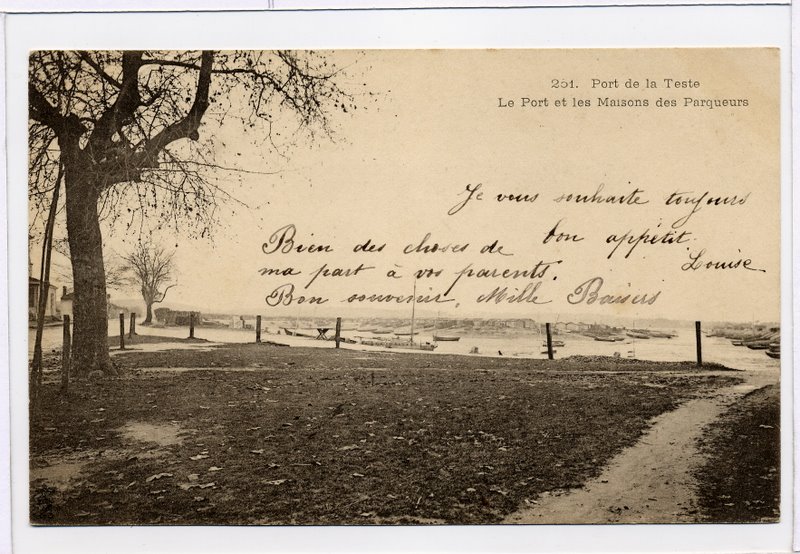 251. Port de la Teste
Le Port et les Maisons des Parqueurs
Je vous souhaite toujours
bon appétit.
Louise
Bien des choses de
ma part à vos parents.
Bon souvenir, Mille Baisers